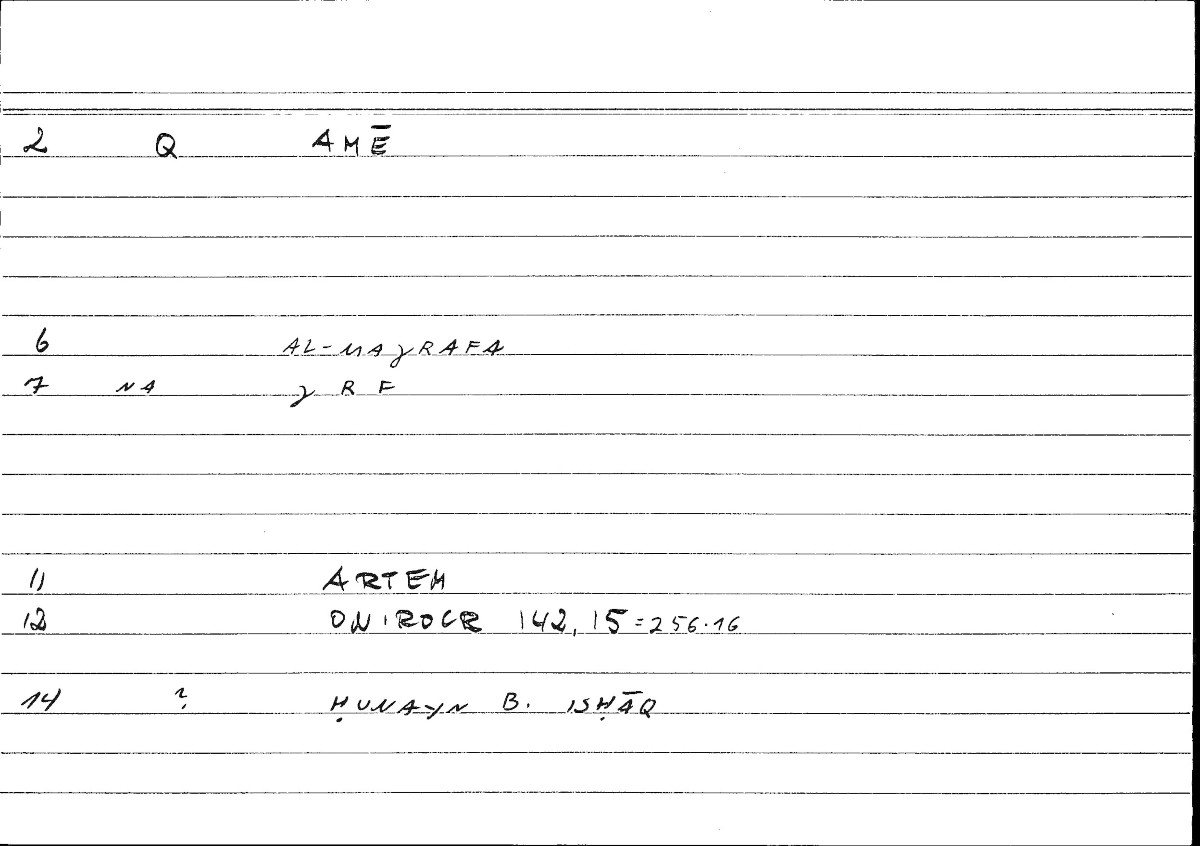 2 Q AMĒ
6 AL-MAγRAFA
7 NA γ R F
11 ARTEM
12 ONIROCR 142,15=256.16
14 ? ḤUNAYN B. ISḤĀQ